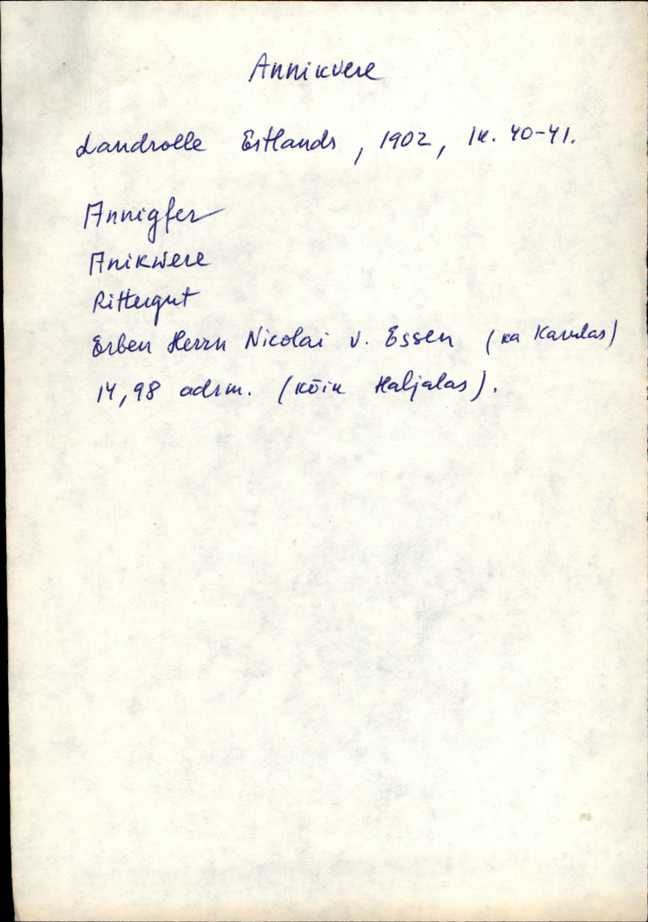 Annikvere
Landrolle Estlands, 1902, lk. 40-41.
Annigfer
Anikwere
Rittergut
Erben Herrn Nicolai v. Essen (ka Kavalas)
14,98 adrm. (kõik Haljalas).